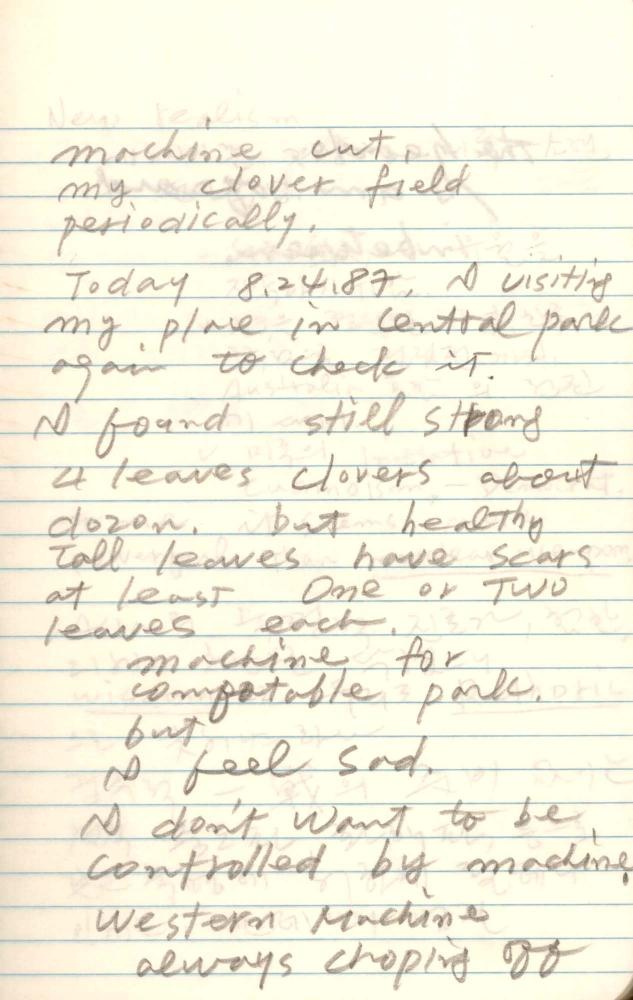 machine cut,
my clover field
periodically.
Today 8.24.87, I visiting
my place in central park
again to check it.
I found still strong
4 leaves clovers about
dozon. but healthy
Tall leaves have scars
at least One or TWO
leaves each.
machine for
compotable park.
but
I feel sad.
I don't want to be
controlled by machine.
Western Machine
always choping off